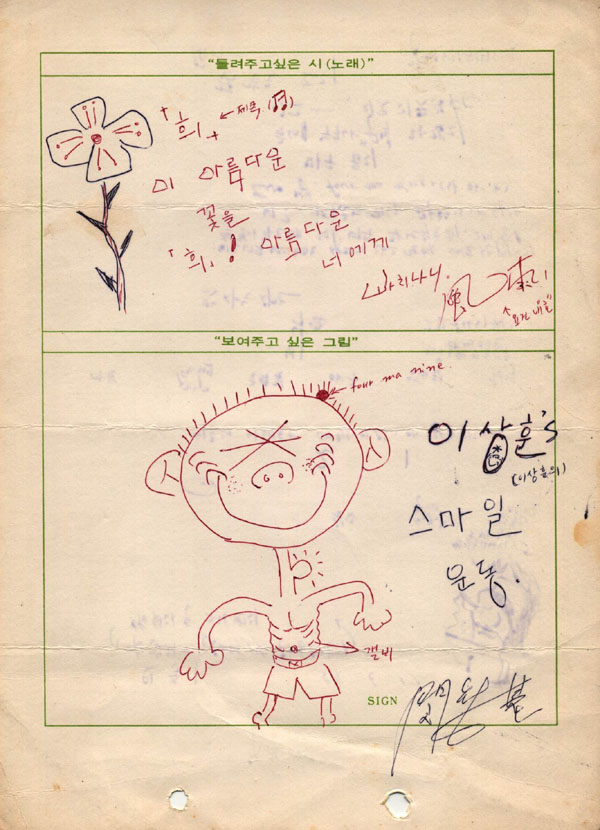 "들려주고싶은 시(노래)"
「희」 ← 제목
이 아름다운
꽃을
「희」! 아름다운
너에게
風
"보여주고 싶은 그림"
← four ma nine
이상훈's
(이상훈의)
스마일
운동.
갈비
SIGN